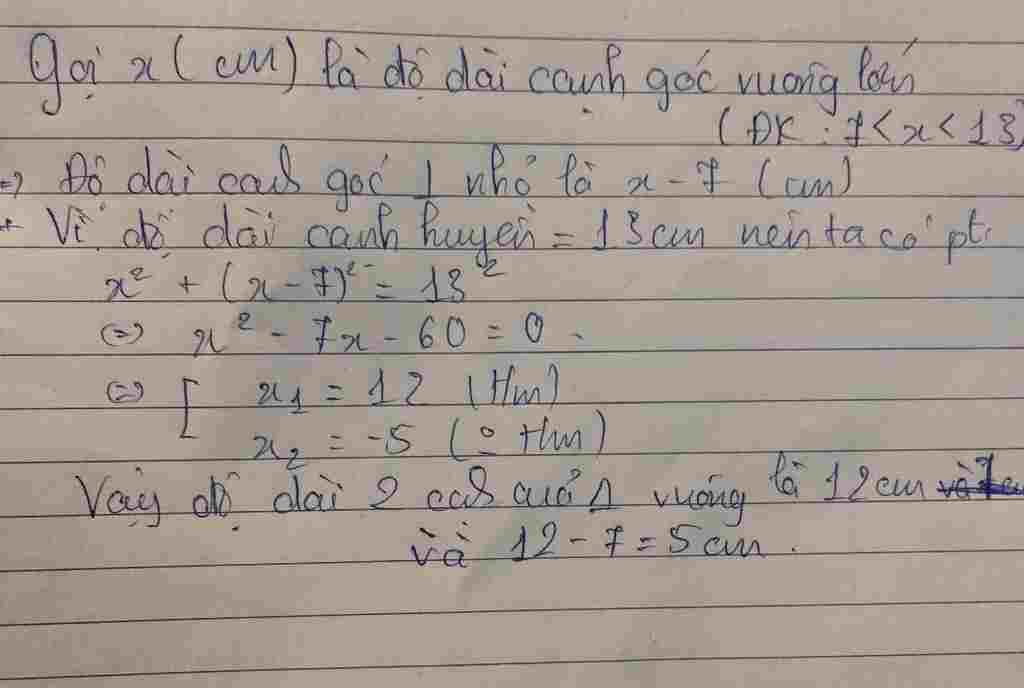 Gọi x (cm) là độ dài cạnh góc vuông lớn
(ĐK : 7 < x < 13)
=> Độ dài cạnh góc ⊥ nhỏ là x - 7 (cm)
+ Vì độ dài cạnh huyền = 13cm nên ta có pt:
x² + (x - 7)² = 13²
(=) x² - 7x - 60 = 0
(=) [ x₁ = 12 (tm)
x₂ = -5 (o tm)
Vậy độ dài 2 của Δ vuông là 12cm
và 12 - 7 = 5cm.